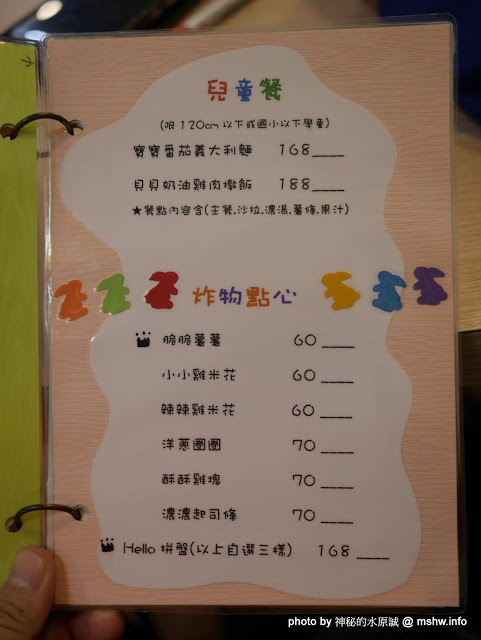 兒童餐
(限 120cm 以下或國小以下學童)
寶寶番茄義大利麵 168____
貝貝奶油雞肉燉飯 188____
★餐點內容含(主餐.沙拉.濃湯.薯條.果汁)
炸物點心
脆脆薯薯 60____
小小雞米花 60____
辣辣雞米花 60____
洋蔥圈圈 70____
酥酥雞塊 70____
濃濃起司條 70____
Hello 拼盤(以上自選三樣) 168____
photo by 神秘的水原誠 @ mshw.info